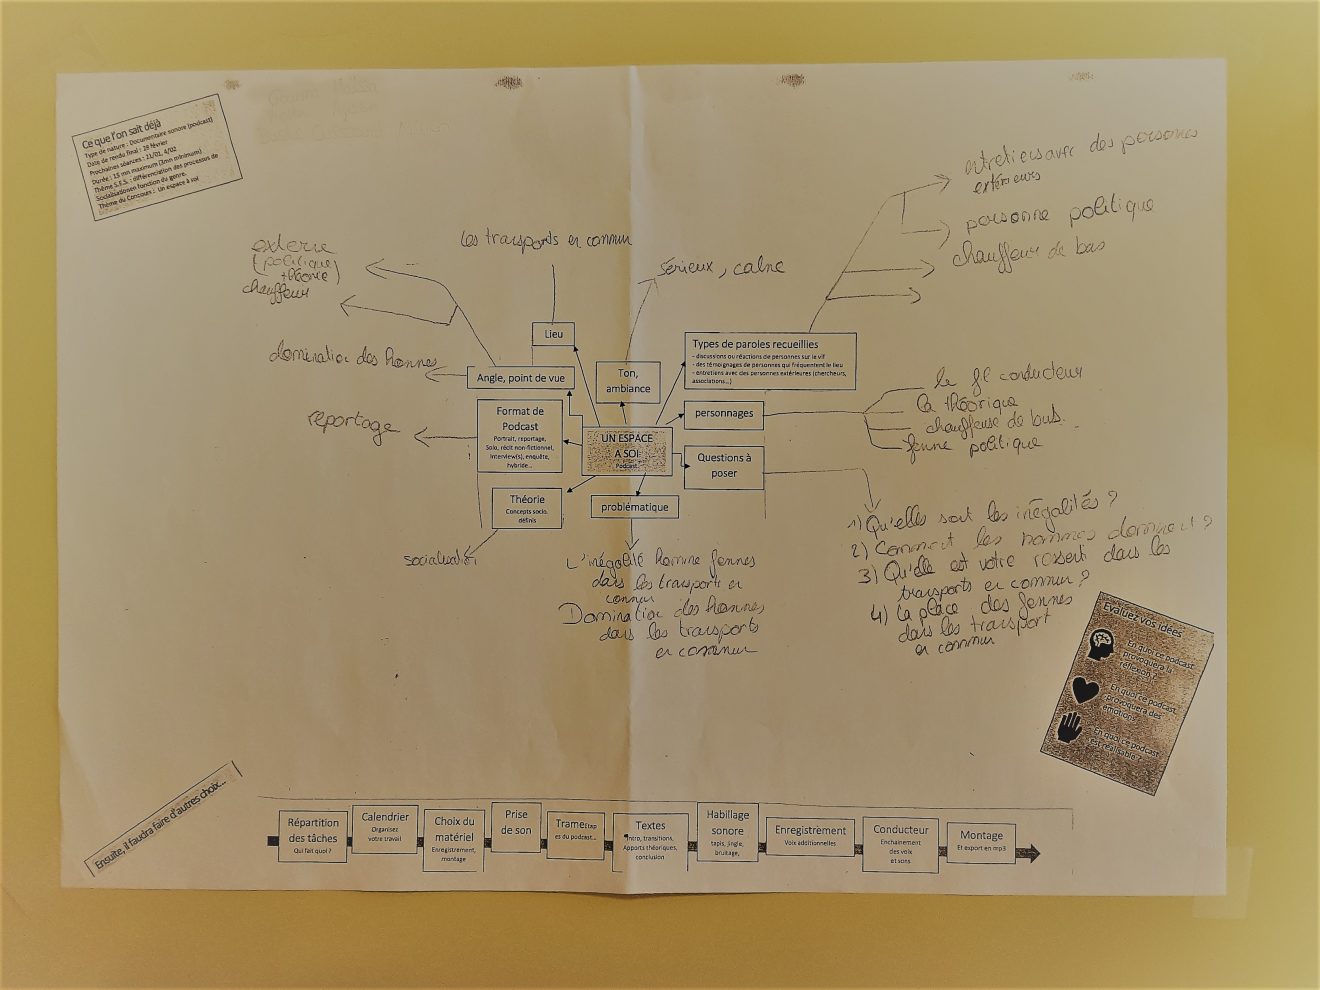 Ce que l'on sait déjà
Type de nature : Documentaire sonore (podcast)
Date de rendu final : 18 février
Prochaines séances : 21/01, 4/02
Durée : 15 mn maximum (3mn minimum)
Thème S.E.S. : différenciation des processus de
Socialisationen fonction du genre.
Thème du Concours : Un espace à soi
entretiens avec des personnes
extérieurs
personne politique
chauffeur de bus
Les transports en commun
sérieux, calme
externe
(politique,
théorie)
chauffeur
domination des hommes
reportage
Lieu
Angle, point de vue
Ton,
ambiance
Types de paroles recueillies
- discussions ou réactions de personnes sur le vif
- des témoignages de personnes qui fréquentent le lieu
- entretiens avec des personnes extérieures (chercheurs,
associations...)
Format de
Podcast
Portrait, reportage,
Solo, récit non-fictionnel,
interview(s), enquête,
hybride...
UN ESPACE
A SOI
Podcast
personnages
le fil conducteur
la théorique
chauffeuse de bus.
femme politique
Questions à
poser
Théorie
Concepts socio.
définis
problématique
socialisation
L'inégalité homme femmes
dans les transports en
commun
Domination des hommes
dans les transports
en commun
1) Qu'elles sont les inégalités ?
2) Comment les hommes dominent ?
3) Qu'elle est votre ressenti dans les
transports en commun ?
4) La place des femmes
dans les transport
en commun
Evaluez vos idées
En quoi ce podcast
provoquera la
réflexion ?
En quoi ce podcast
provoquera des
émotions ?
En quoi ce podcast
est réalisable ?
Ensuite, il faudra faire d'autres choix...
Répartition
des tâches
Qui fait quoi ?
Calendrier
Organisez
votre travail
Choix du
matériel
Enregistrement,
montage
Prise
de son
Trame Etap
es du podcast...
Textes
Intro, transitions,
Apports théoriques,
conclusion
Habillage
sonore
tapis, jingle,
bruitage,
Enregistrement
Voix additionnelles
Conducteur
Enchainement
des voix
et sons
Montage
Et export en mp3